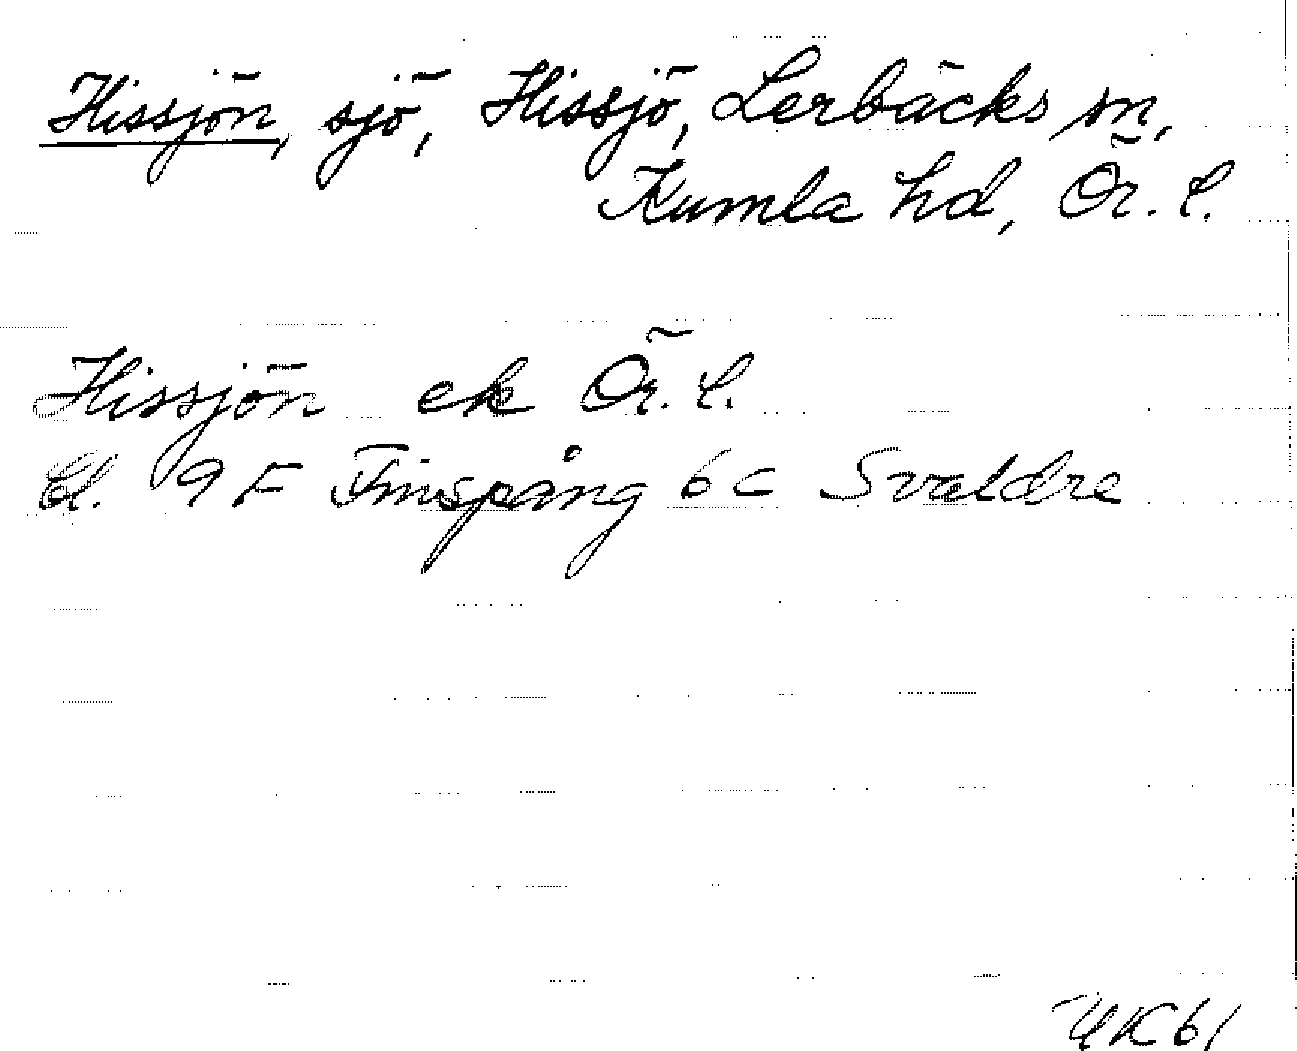 Hissjön, sjö, Hissjö, Lerbäcks sn,
Kumla hd, Ör. l.
Hissjön ek Ör. l.
Bl. 9F Finspång 6c Svaldre